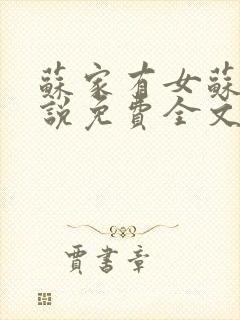 蘇家有女蘇
說免費全文
賈書章